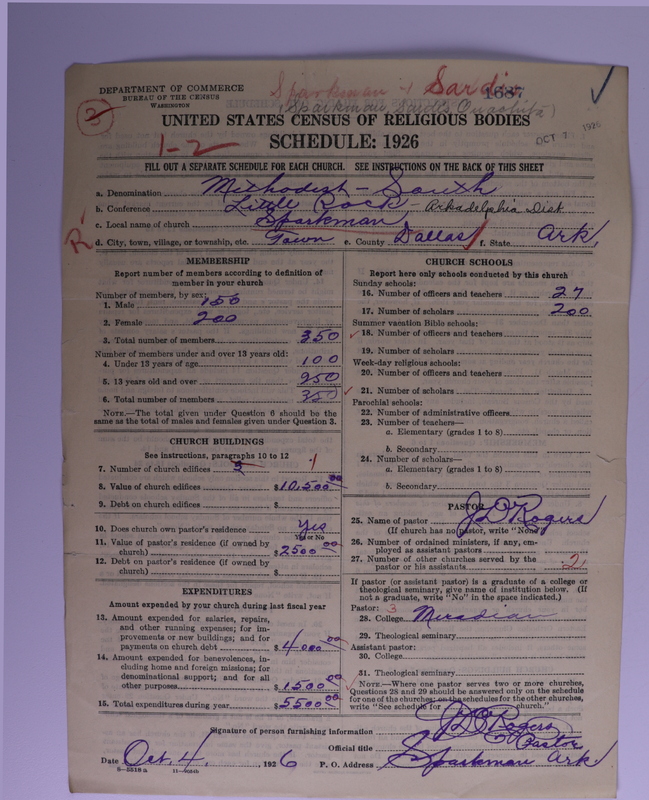 DEPARTMENT OF COMMERCE
BUREAU OF THE CENSUS
WASHINGTON
Sparkman & Sardis
1687
(Sparkman Sardis Ouachita)
3
UNITED STATES CENSUS OF RELIGIOUS BODIES
SCHEDULE: 1926
OCT 7 1926
1-2
FILL OUT A SEPARATE SCHEDULE FOR EACH CHURCH. SEE INSTRUCTIONS ON THE BACK OF THIS SHEET
a. Denomination Methodist - South
b. Conference Little Rock - Arkadelphia Dist.
c. Local name of church Sparkman
R
d. City, town, village, or township, etc. Town e. County Dallas f. State Ark,
MEMBERSHIP
Report number of members according to definition of
member in your church
Number of members, by sex:
1. Male 150
2. Female 200
3. Total number of members 350
Number of members under and over 13 years old:
4. Under 13 years of age 100
5. 13 years old and over 250
6. Total number of members 350
NOTE.—The total given under Question 6 should be
the same as the total of males and females given under Question 3.
CHURCH BUILDINGS
See instructions, paragraphs 10 to 12
7. Number of church edifices 3 1
8. Value of church edifices $10,500 00
9. Debt on church edifices $
10. Does church own pastor's residence Yes
Yes or No
11. Value of pastor's residence (if owned by
church) $2500 00
12. Debt on pastor's residence (if owned by
church) $
EXPENDITURES
Amount expended by your church during last fiscal year
13. Amount expended for salaries, repairs,
and other running expenses; for im-
provements or new buildings; and for
payments on church debt $4000 00
14. Amount expended for benevolences, in-
cluding home and foreign missions; for
denominational support; and for all
other purposes $1500 00
15. Total expenditures during year $5500 00
CHURCH SCHOOLS
Report here only schools conducted by this church
Sunday schools:
16. Number of officers and teachers 27
17. Number of scholars 200
Summer vacation Bible schools:
18. Number of officers and teachers
19. Number of scholars
Week-day religious schools:
20. Number of officers and teachers
21. Number of scholars
Parochial schools:
22. Number of administrative officers
23. Number of teachers—
a. Elementary (grades 1 to 8)
b. Secondary
24. Number of scholars—
a. Elementary (grades 1 to 8)
b. Secondary
PASTOR
25. Name of pastor J D Rogers
(If church has no pastor, write "None")
26. Number of ordained ministers, if any, em-
ployed as assistant pastors
27. Number of other churches served by the
pastor or his assistants 2
If pastor (or assistant pastor) is a graduate of a college or
theological seminary, give name of institution below. (If
not a graduate, write "No" in the space indicated.)
Pastor: 3
28. College Meridian
29. Theological seminary
Assistant pastor:
30. College
31. Theological seminary
NOTE.—Where one pastor serves two or more churches,
Questions 28 and 29 should be answered only on the schedule
for one of the churches; on the schedules for the other churches,
write "See schedule for church."
Signature of person furnishing information J D Rogers
Official title Pastor
Date Oct. 4, 1926 P. O. Address Sparkman Ark